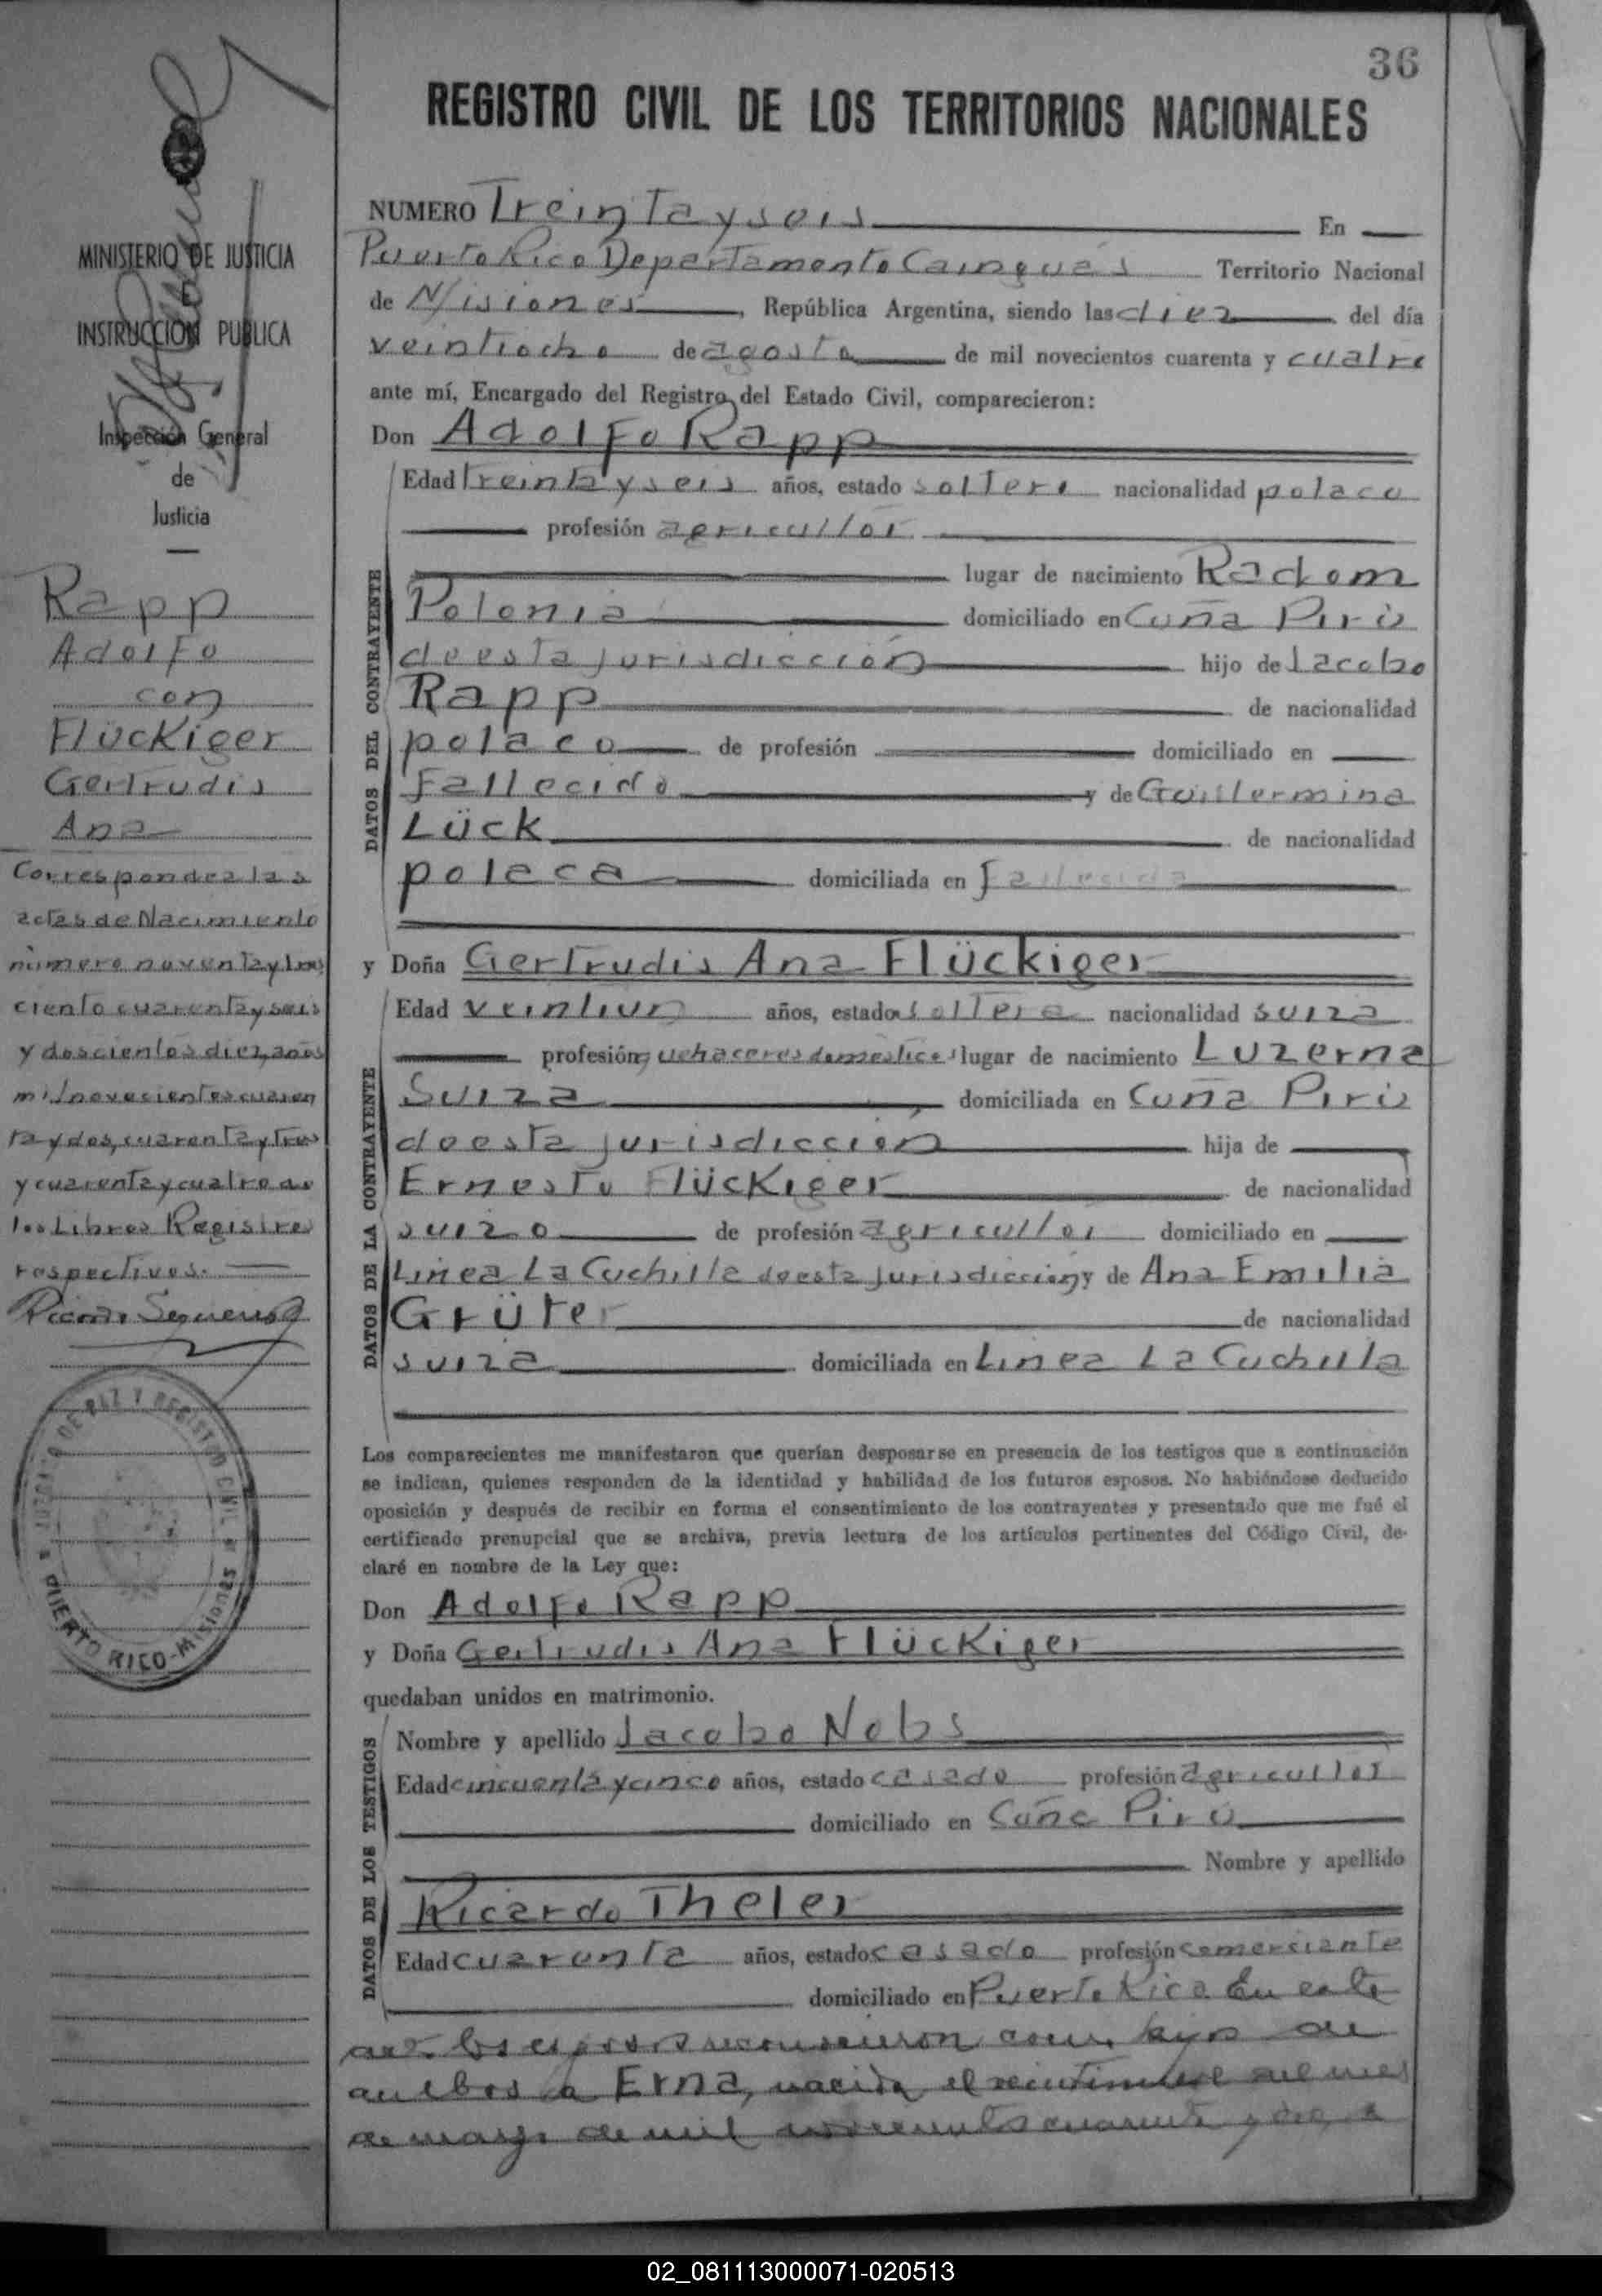 36
REGISTRO CIVIL DE LOS TERRITORIOS NACIONALES
MINISTERIO DE JUSTICIA
E
INSTRUCCIÓN PUBLICA
Inspección General
de
Justicia
Rapp
Adolfo
con
Flückiger
Gertrudis
Ana
Corresponde a las
actas de Nacimiento
número noventa y tres
ciento cuarenta y seis
y doscientos diez, años
mil novecientos cuaren
ta y dos, cuarenta y tres
y cuarenta y cuatro de
los Libros Registros
respectivos.
JUZGADO DE PAZ Y REGISTRO CIVIL
PUERTO RICO-Misiones
NUMERO Treinta y seis En
Puerto Rico Departamento Cainguás Territorio Nacional
de Misiones, República Argentina, siendo las diez del día
veintiocho de agosto de mil novecientos cuarenta y cuatro
ante mí, Encargado del Registro del Estado Civil, comparecieron:
Don Adolfo Rapp
DATOS DEL CONTRAYENTE
Edad treinta y seis años, estado soltero nacionalidad polaco
profesión agricultor
lugar de nacimiento Radom
Polonia domiciliado en Cuña Pirú
de esta jurisdicción hijo de Jacobo
Rapp de nacionalidad
polaco de profesión domiciliado en
fallecido y de Guillermina
Lück de nacionalidad
polaca domiciliada en fallecida
y Doña Gertrudis Ana Flückiger
DATOS DE LA CONTRAYENTE
Edad veintiun años, estado soltera nacionalidad suiza
profesión quehaceres domésticos lugar de nacimiento Luzerna
Suiza domiciliada en Cuña Pirú
de esta jurisdicción hija de
Ernesto Flückiger de nacionalidad
suizo de profesión agricultor domiciliado en
Linea La Cuchilla de esta jurisdicción y de Ana Emilia
Grüter de nacionalidad
suiza domiciliada en Linea La Cuchilla
Los comparecientes me manifestaron que querían desposarse en presencia de los testigos que a continuación
se indican, quienes responden de la identidad y habilidad de los futuros esposos. No habiéndose deducido
oposición y después de recibir en forma el consentimiento de los contrayentes y presentado que me fué el
certificado prenupcial que se archiva, previa lectura de los artículos pertinentes del Código Civil, de-
claré en nombre de la Ley que:
Don Adolfo Rapp
y Doña Gertrudis Ana Flückiger
quedaban unidos en matrimonio.
DATOS DE LOS TESTIGOS
Nombre y apellido Jacobo Nobs
Edad cincuenta y cinco años, estado casado profesión agricultor
domiciliado en Cuña Pirú
Nombre y apellido
Ricardo Theler
Edad cuarenta años, estado casado profesión comerciante
domiciliado en Puerto Rico. En este
los esposos reconocieron como hijos de
ambos a Erna, nacida el veintinueve del mes
de mayo de mil novecientos cuarenta y dos, a
02_081113000071-020513